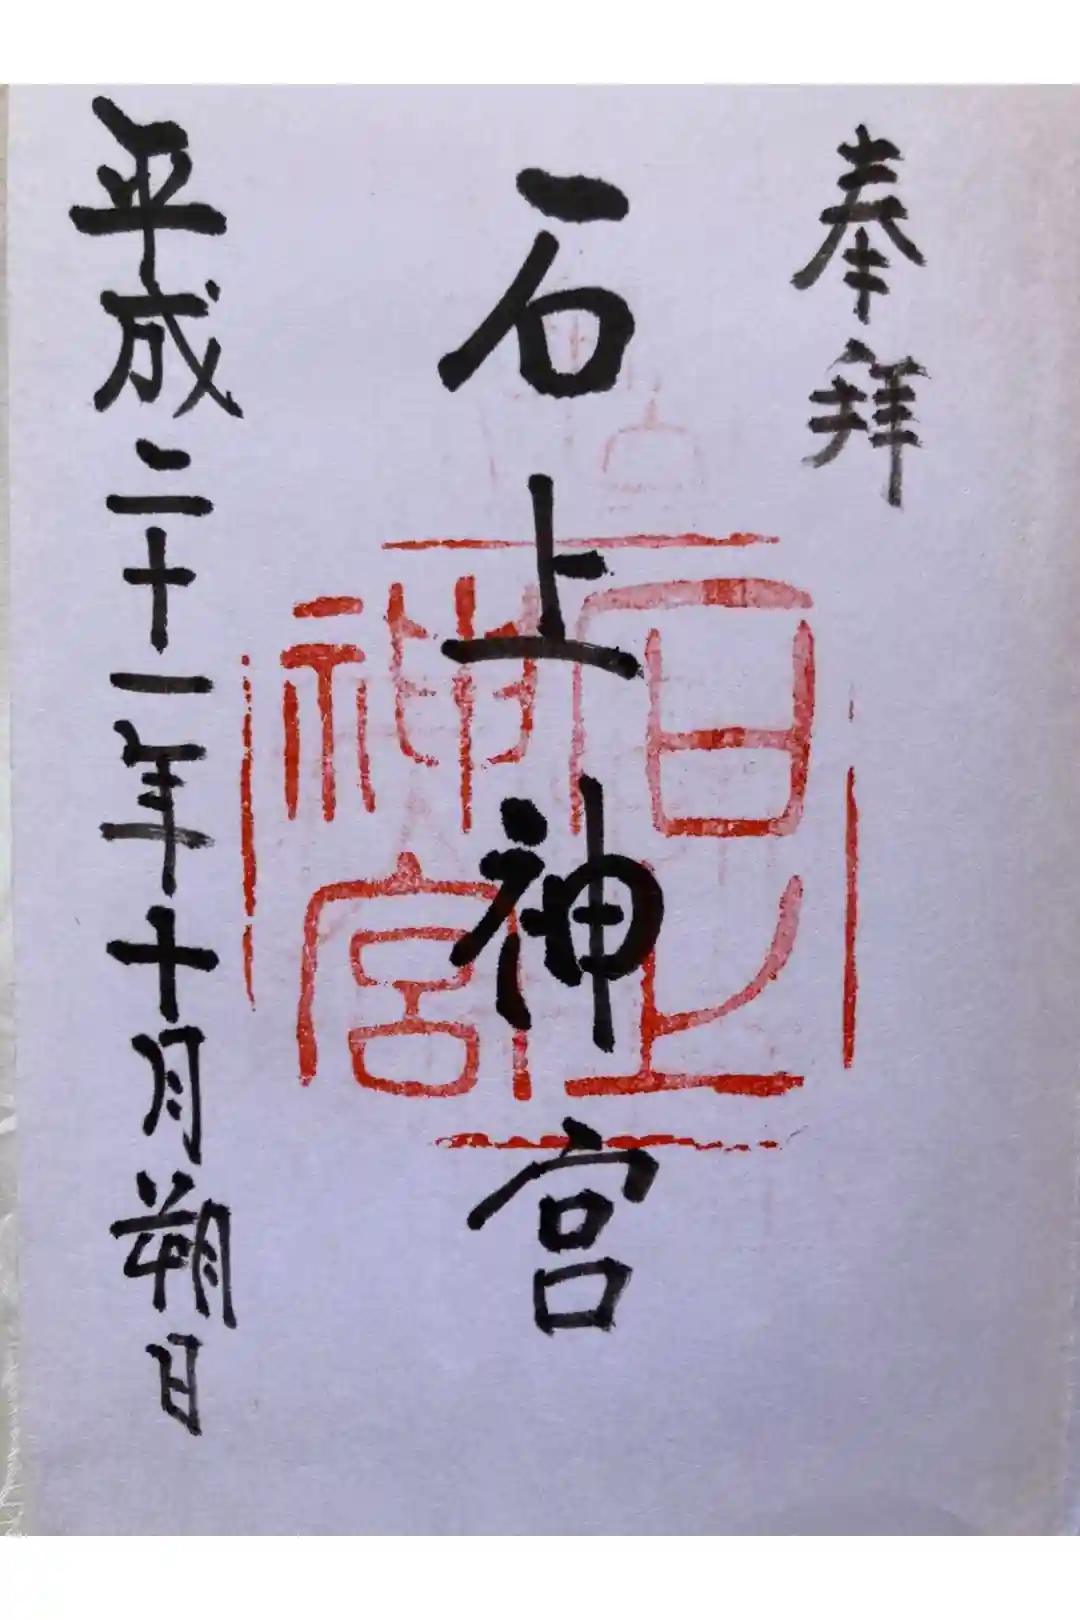 奉拝
石上神宮
石上神宮
平成二十一年十月朔日